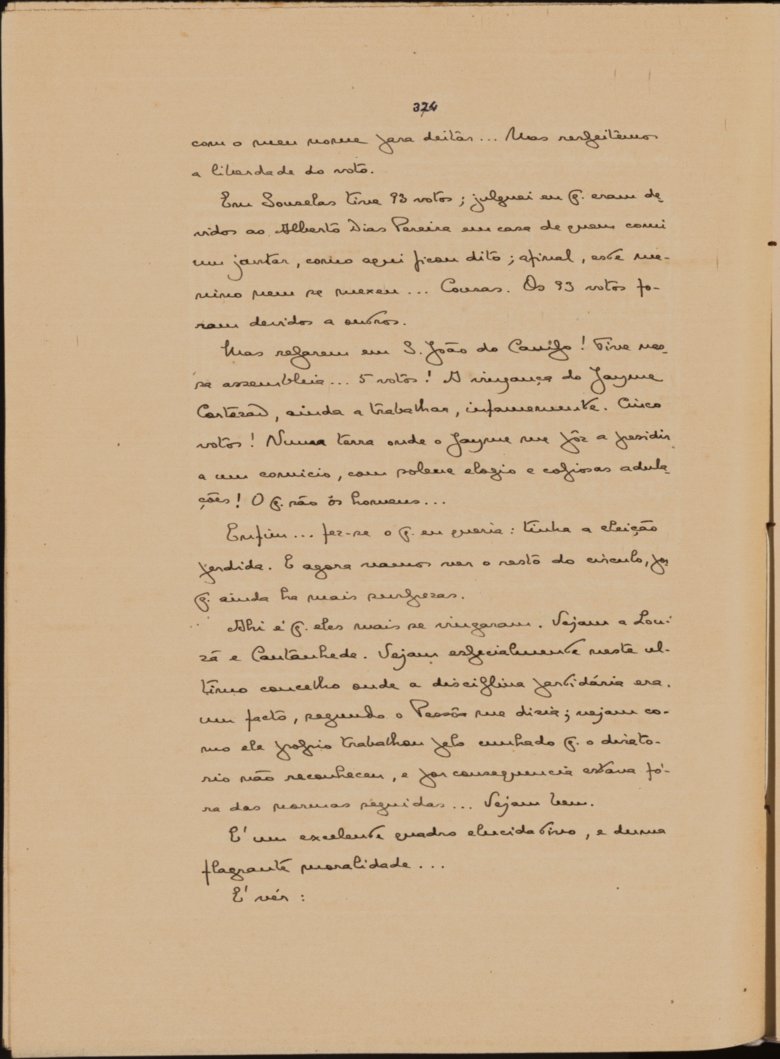 324
com o meu nome para deitar... Mas respeitêmos
a liberdade do voto.
Em Souzelas tive 93 votos; julguei eu q. eram de-
vidos ao Alberto Dias Pereira em casa de quem comi
um jantar, como aqui ficou dito; afinal, esse me-
nino nem se mexeu... Couzas. Os 93 votos fo-
ram devidos a outros.
Mas reparem em S. João do Campo! Tive nes-
sa assembleia... 5 votos! A vingança do Jayme
Cortezão, ainda a trabalhar, infamemente. Cinco
votos! Numa terra onde o Jayme me pôz a presidir
a um comicio, com solene elogio e copiosas adula-
ções! O q. são os homens...
Emfim... fez-se o q. eu queria: tinha a eleição
perdida. E agora vamos ver o resto do circulo, por
q. ainda ha mais surprezas.
Ahi é q. eles mais se vingaram. Vejam a Lou-
zã e Cantanhede. Vejam especialmente neste ul-
timo concelho onde a disciplina partidária era
um facto, segundo o Pessôa me dizia; vejam co-
mo ele proprio trabalhou pelo cunhado q. o direto-
rio não reconheceu, e por consequencia estava fó-
ra das normas seguidas... Vejam bem.
E' um excelente quadro elucidativo, e duma
flagrante moralidade...
E' vêr: